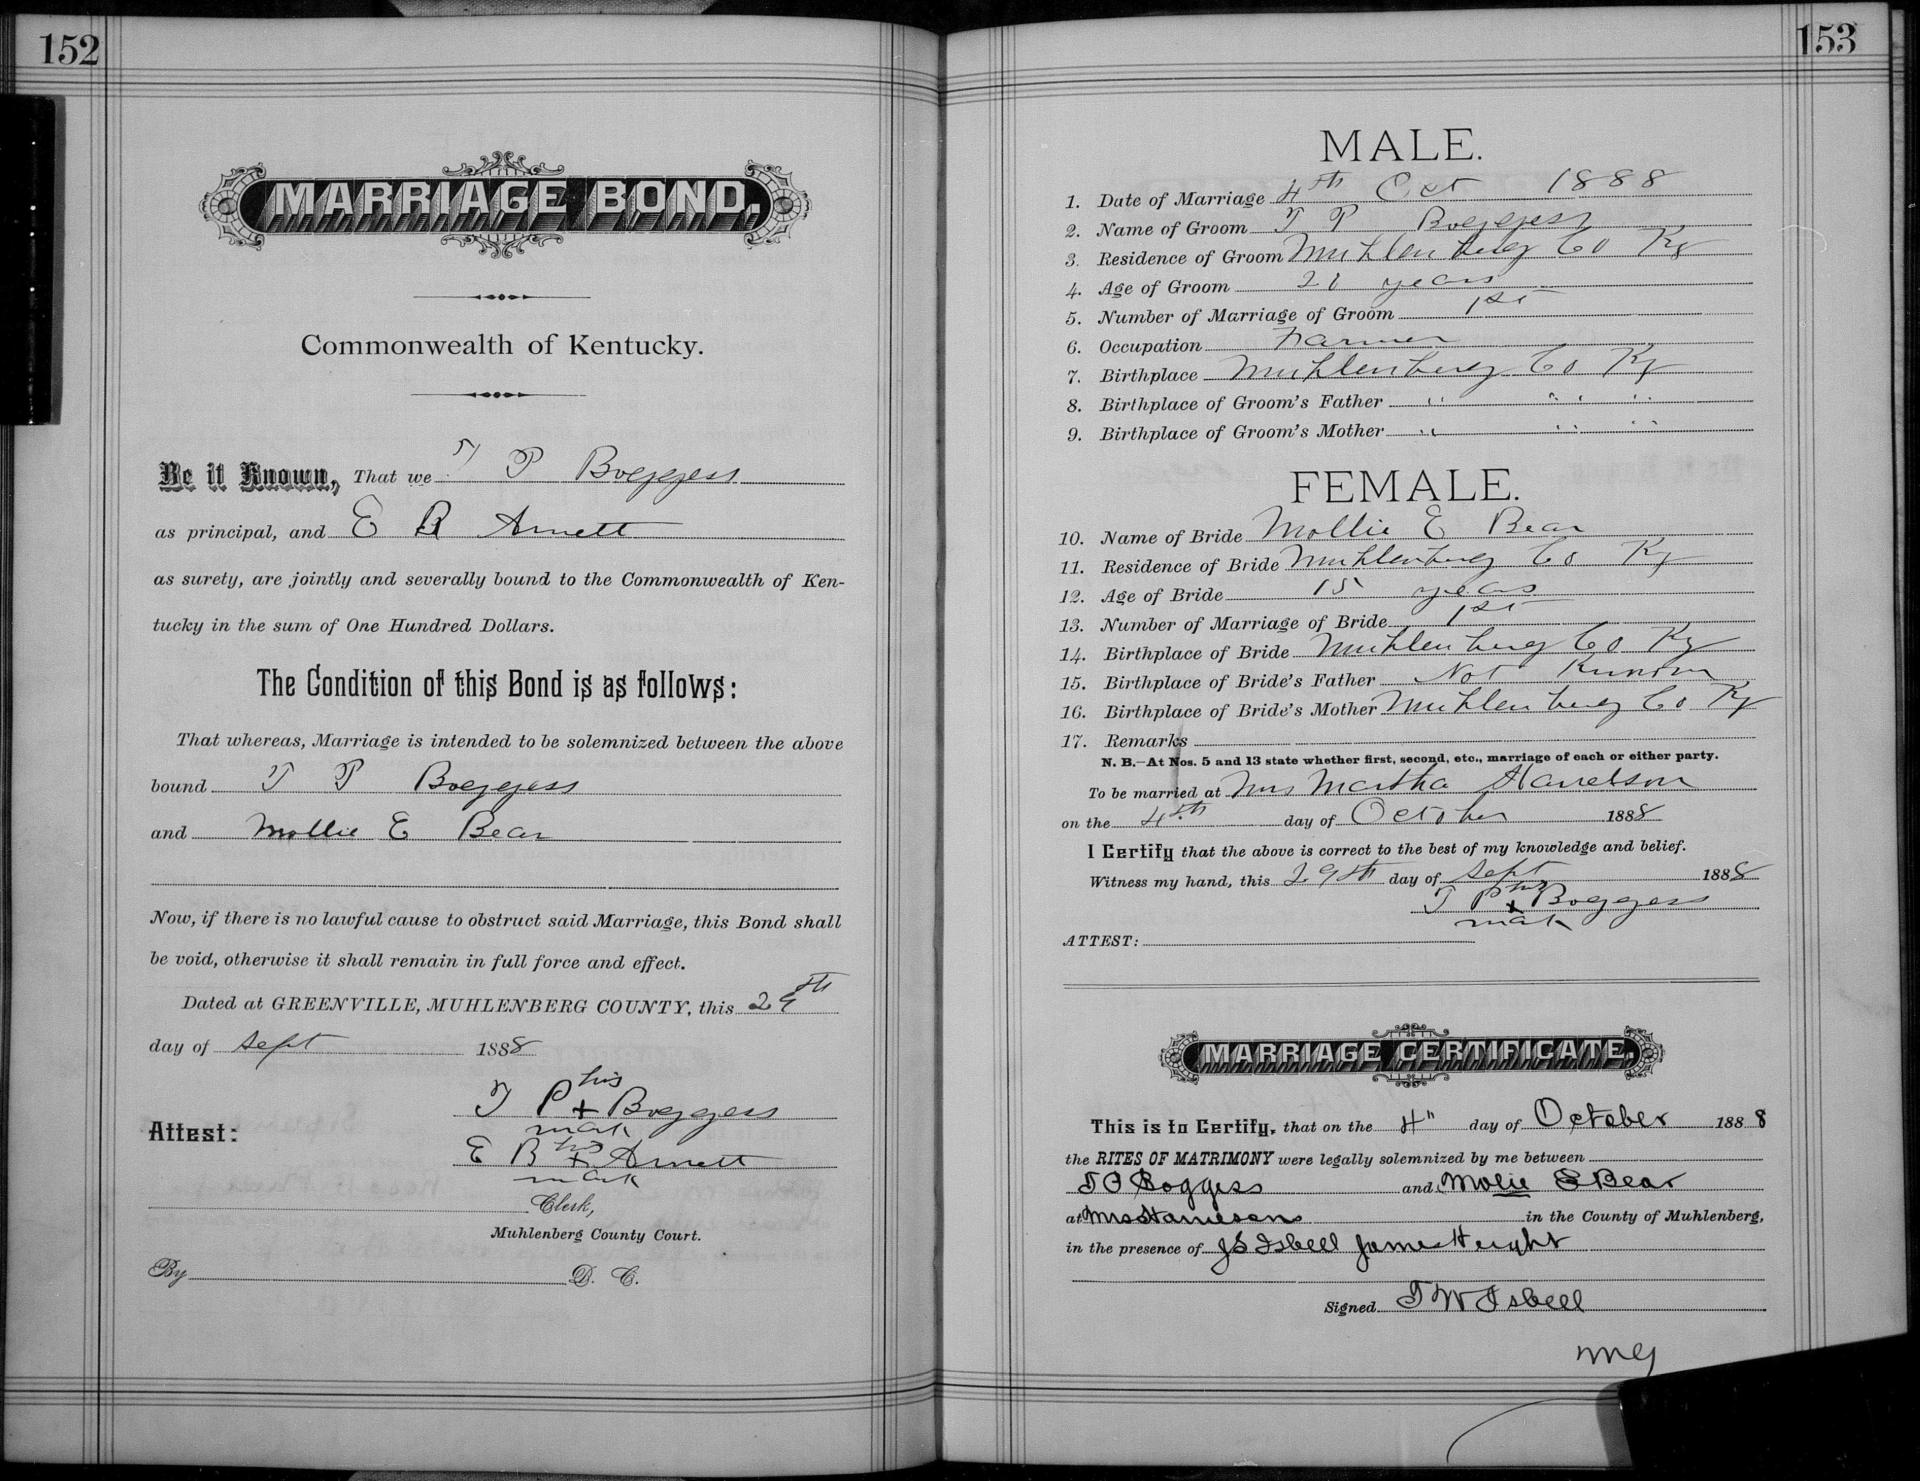 152
MARRIAGE BOND.
Commonwealth of Kentucky.
Be it Known, That we T P Boggess
as principal, and E B Arnett
as surety, are jointly and severally bound to the Commonwealth of Ken-
tucky in the sum of One Hundred Dollars.
The Condition of this Bond is as follows:
That whereas, Marriage is intended to be solemnized between the above
bound T P Boggess
and Mollie E Bear
Now, if there is no lawful cause to obstruct said Marriage, this Bond shall
be void, otherwise it shall remain in full force and effect.
Dated at GREENVILLE, MUHLENBERG COUNTY, this 29th
day of Sept 1888
his
T P + Boggess
mark
Attest:
his
E B + Arnett
mark
Clerk,
Muhlenberg County Court.
By D. C.
153
MALE.
1. Date of Marriage 4th Oct 1888
2. Name of Groom T P Boggess
3. Residence of Groom Muhlenberg Co Ky
4. Age of Groom 21 years
5. Number of Marriage of Groom 1st
6. Occupation Farmer
7. Birthplace Muhlenberg Co Ky
8. Birthplace of Groom's Father " " "
9. Birthplace of Groom's Mother " " "
FEMALE.
10. Name of Bride Mollie E Bear
11. Residence of Bride Muhlenberg Co Ky
12. Age of Bride 15 years
13. Number of Marriage of Bride 1st
14. Birthplace of Bride Muhlenberg Co Ky
15. Birthplace of Bride's Father Not Known
16. Birthplace of Bride's Mother Muhlenberg Co Ky
17. Remarks
N. B.—At Nos. 5 and 13 state whether first, second, etc., marriage of each or either party.
To be married at Mrs Martha
on the 4th day of October 1888
I Certify that the above is correct to the best of my knowledge and belief.
Witness my hand, this 29th day of Sept 1888
his
T P + Boggess
mark
ATTEST:
MARRIAGE CERTIFICATE.
This is to Certify, that on the 4" day of October 1888
the RITES OF MATRIMONY were legally solemnized by me between
T P Boggess and Molie E Bear
at Mrs in the County of Muhlenberg,
in the presence of J S Isbell James Height
Signed T W Isbell
MG